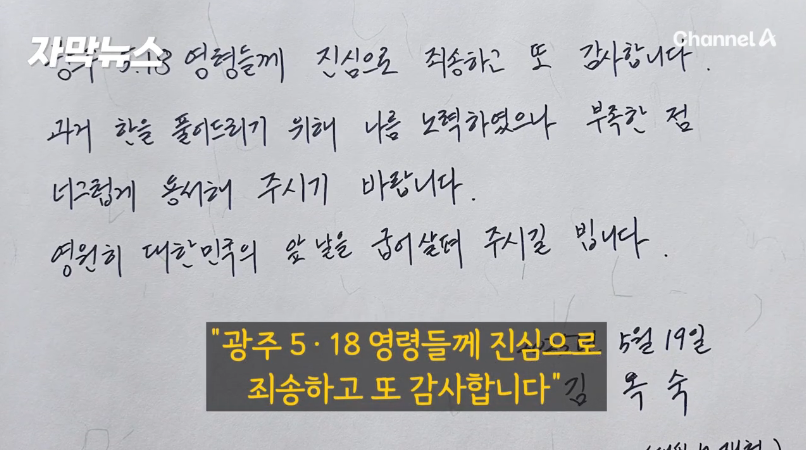 자막뉴스
Channel A
광주 5.18 영령들께 진심으로 죄송하고 또 감사합니다.
과거 한을 풀어드리기 위해 나름 노력하였으나 부족한 점
너그럽게 용서해 주시기 바랍니다.
영원히 대한민국의 앞날을 굽어살펴 주시길 빕니다.
"광주 5·18 영령들께 진심으로
죄송하고 또 감사합니다"
5월 19일
김옥숙